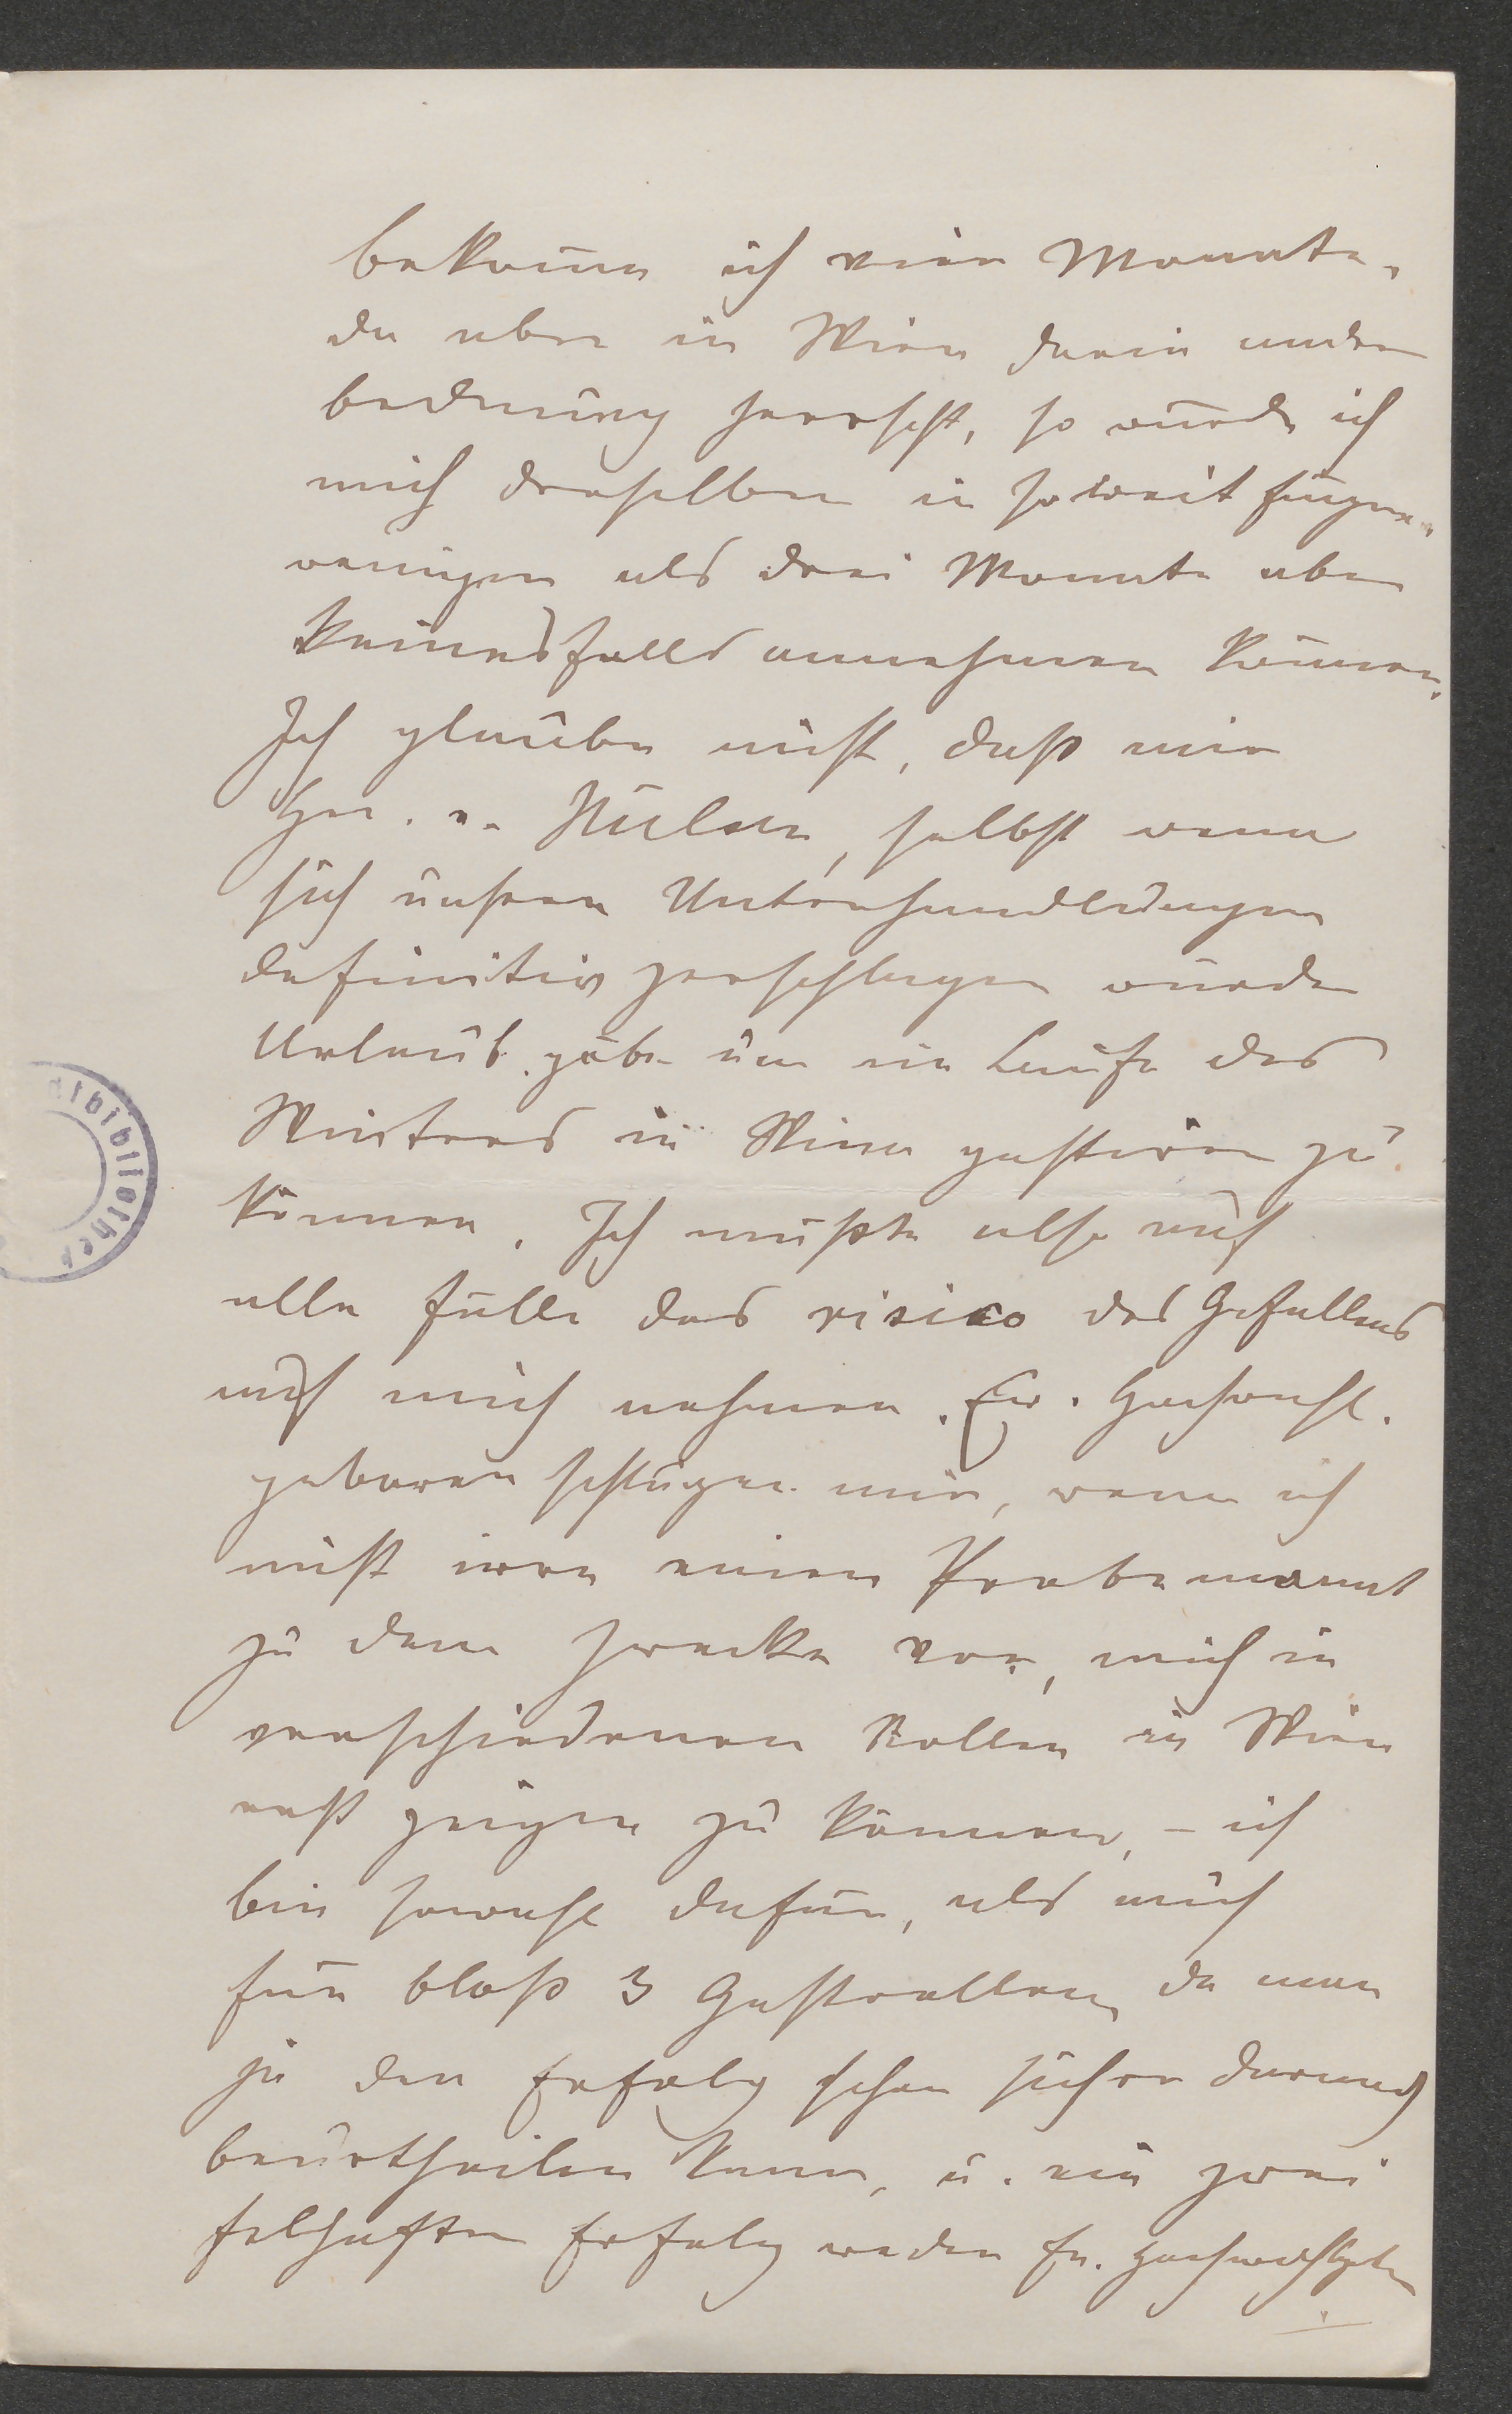 bekomme ich vier Monate,
da aber in Wien darin andere
bednung herrscht, so würde ich
mich derselben in soweit fügen,
weniger als drei Monate aber
keinesfalls annehmen können.
Ich glaube nicht, daß mir
Hr. v. Hülsen, selbst wenn
sich unsere Unterhandlungen
definitiv zerschlagen würden
Urlaub gäbe um im Laufe des
Winters in Wien gastiren zu
können. Ich müßte also auf
alle Fälle das risico des Gefallens
auf mich nehmen. Ew. Hochwohl.
geboren schlugen mir, wenn ich
nicht irre einen Probemonat
zu dem Zwecke vor, mich in
verschiedenen Rollen in Wien
erst zeigen zu können, – ich
bin sowohl dafür, als auch
für bloß 3 Gastrollen, da man
ja den Erfolg schon sicher darnach
beurtheilen kann, u. ein zwei
felhafter Erfolg weder Ew. Hochwohlgeb
atbibliothek